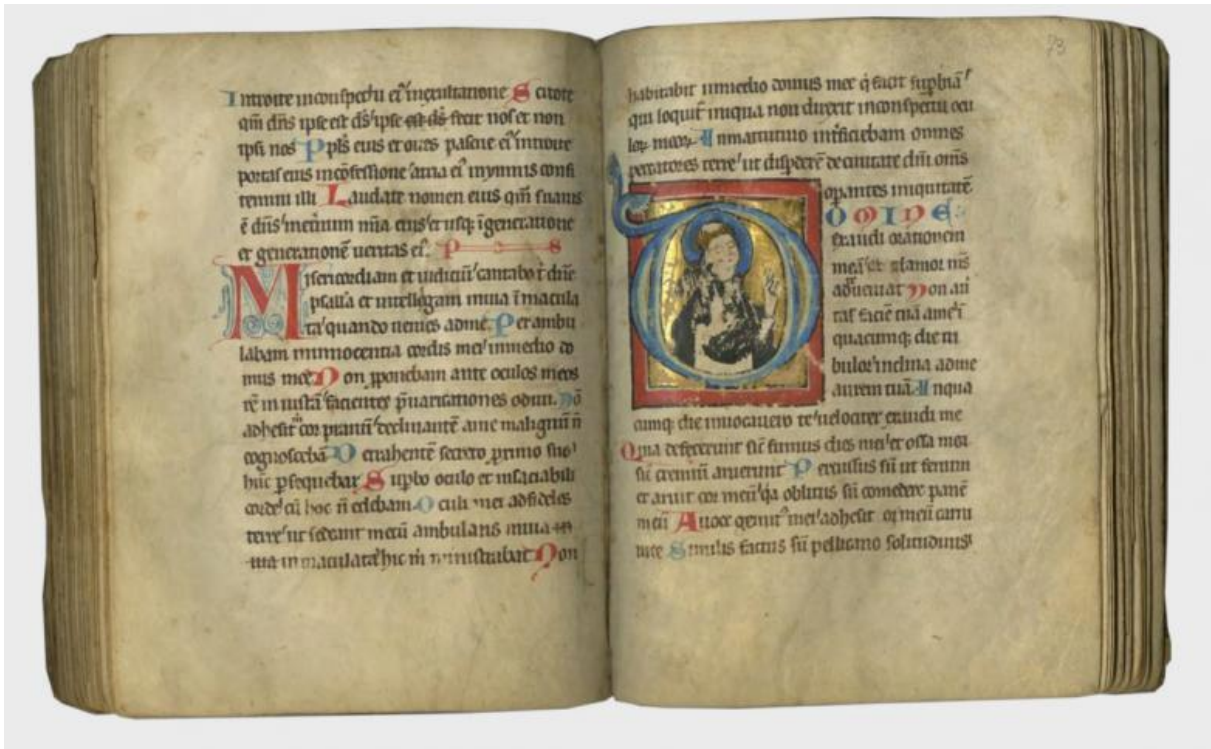 Introite in conspectu ei' in exultatione Scitote
qm̄ dn̄s ipse est ds̄ ipse est ds̄ fecit nos et non
ipsi nos Ppl̄s eius et oues pascue ei' introite
portas eius in cōfessione atria ei' in ymnis confi
temini illi Laudate nomen eius qm̄ suauis
ē dn̄s in et̄num mīa eius et usq; ī generatione
et generationē ueritas ei' P S
Misericordiam et iudiciū cantabo t̄ dn̄e
psallā et intellegam in uia īmacula
ta quando uenies ad me Perambu
labam in innocentia cordis mei in medio do
mus mee Non ꝓponebam ante oculos meos
rē in iustā facientes p̄uaricationes odiui Nō
adhesit m̄ cor prauū declinantē a me malignū n̄
cognoscebā Detrahentē secreto ꝓximo suo
hūc ꝑsequebar Supbo oculo et insaciabili
corde cū hoc n̄ edebam Oculi mei ad fideles
terre ut sedeant mecū ambulans in uia in
in maculata hic m̄ ministrabat Non
73
habitabit in medio domus mee q̄ facit supbiā
qui loquit' iniqua non direxit in conspectu ocu
loꝝ meoꝝ In matutino int̄ficiebam omnes
peccatores terre ut disperdē de ciuitate dn̄i om̄s
opantes iniquitatē
OMINE
exaudi orationem
meā et clamor m̄s
ad te ueniat Non au
tas faciē tuā a me ī
quacumq; die tri
bulor inclina ad me
aurem tuā In qua
cumq; die inuocauero te uelociter exaudi me
Quia defecerunt sic̄ fumus dies mei et ossa mea
sic̄ cremiū aruerunt Percussus sū ut fenum
et aruit cor meū q̄a oblitus sū comedere panē
meū A uoce gemit' mei adhesit os meū carni
mee Similis factus sū pellicano solitudinis